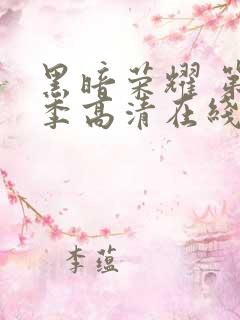 黑暗荣耀 第
季高清在线
李蕴